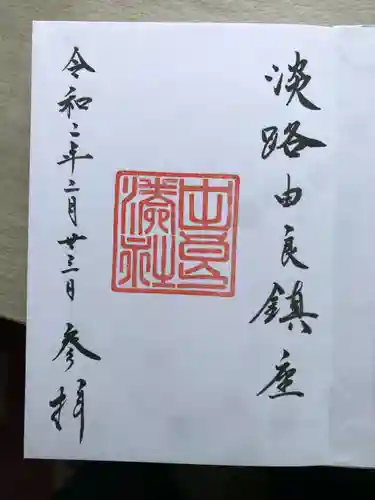 淡路由良鎮座
由良湊社
令和二年二月廿三日 参拝